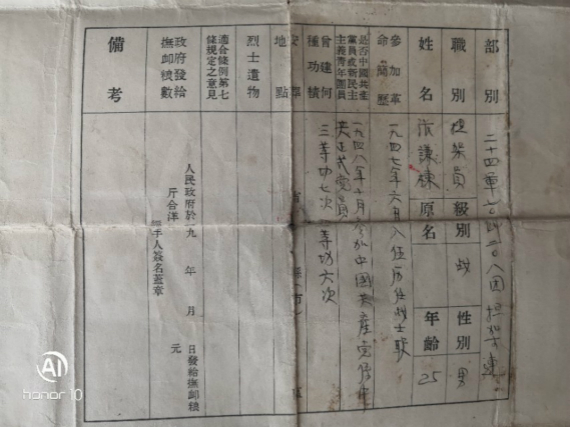 部別 二十四軍七〇師二〇八团担架連
職別 担架員 級別 战 性別 男
姓名 謙棟 原名 年齡 25
參加革命簡歷 一九四七年六月入伍历任战士
是否中國共產黨員或新民主主義青年團員 一九四八年 月参加中國共產党
正式党員
曾建何種功績 三等功七次 等功六次
安葬地點
烈士遺物
適合條例第七條規定之意見
政府發給撫卹粮數 人民政府於一九 年 月 日發給撫卹粮
斤合洋 元
經手人簽名蓋章
備考
AI
honor 10